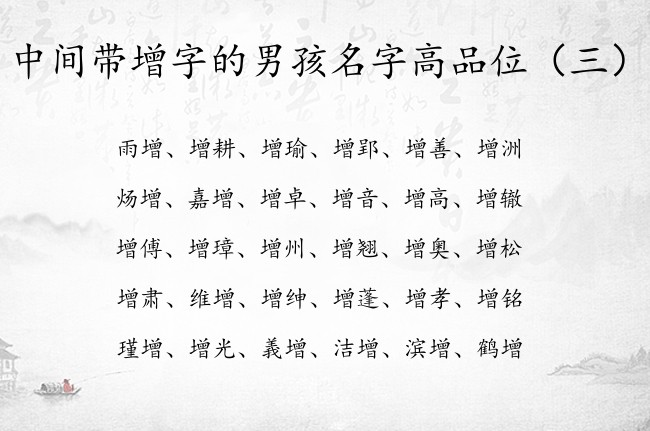 中间带增字的男孩名字高品位（三）
雨增、增耕、增瑜、增郢、增善、增洲
炀增、嘉增、增卓、增音、增高、增辙
增傅、增璋、增州、增翘、增奥、增松
增肃、维增、增绅、增蓬、增孝、增铭
瑾增、增光、義增、洁增、滨增、鹤增